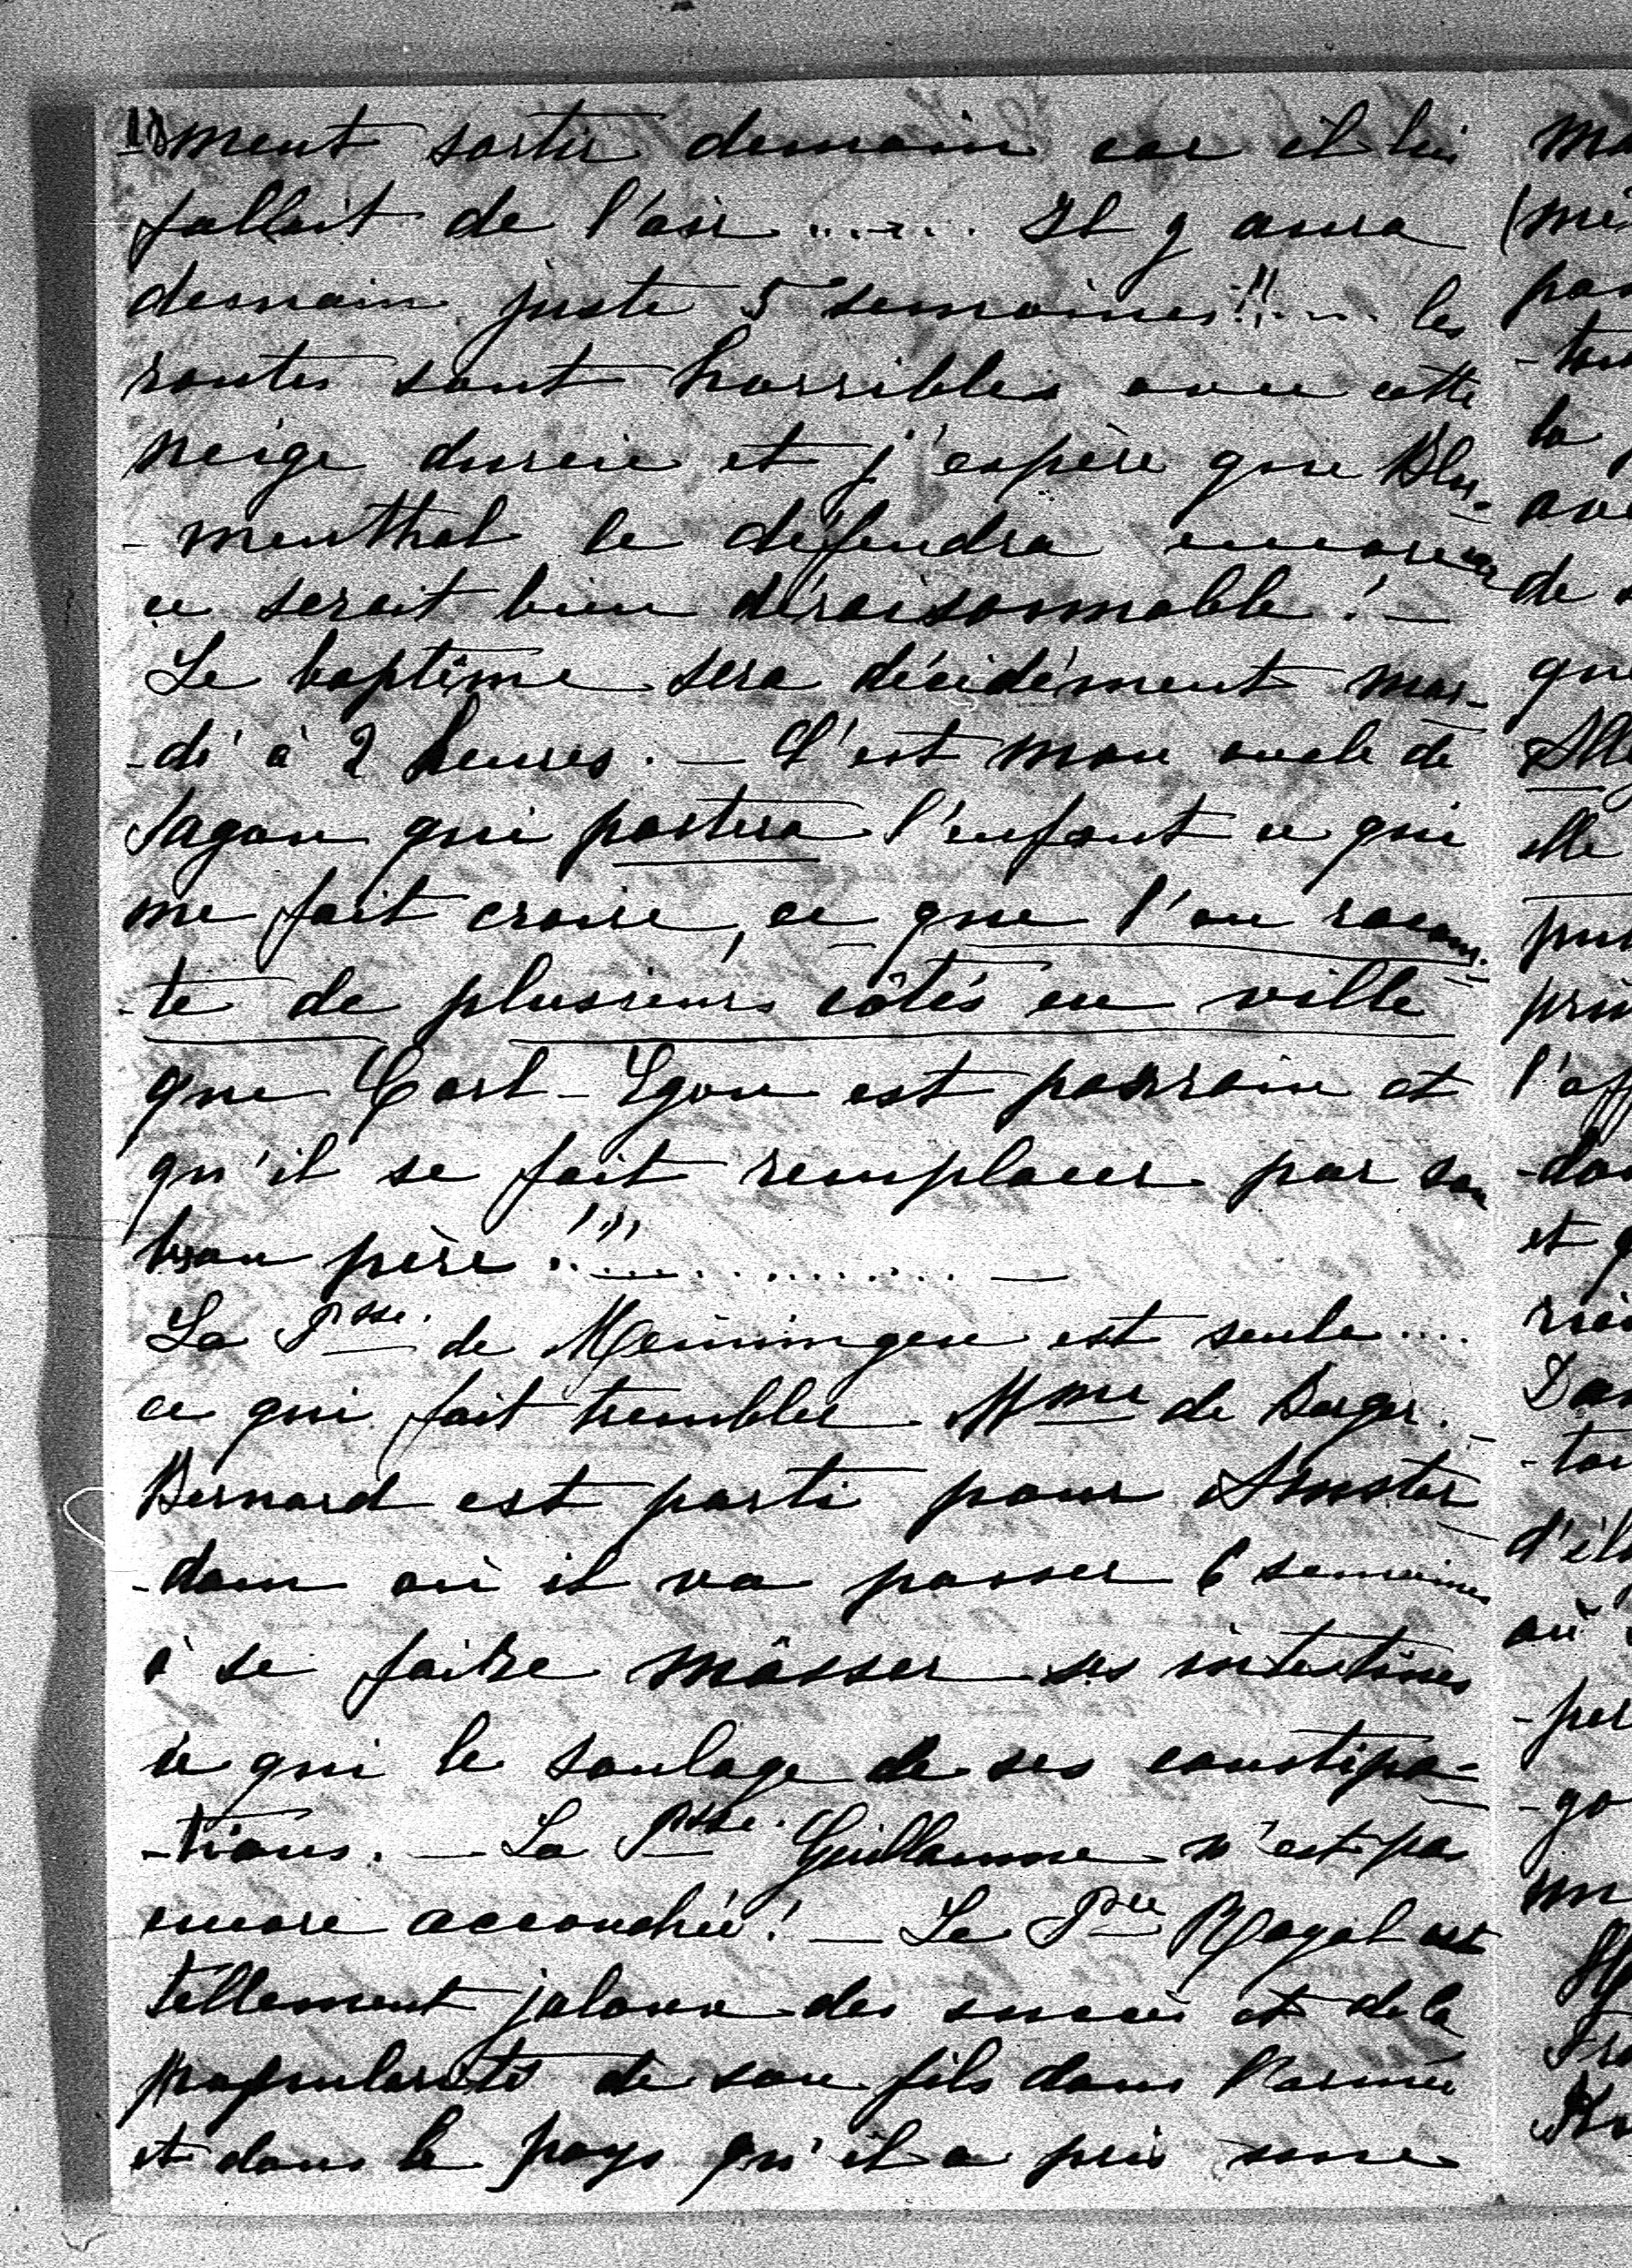 ment sortir demain car il lui
fallait de l'air ...... Il y aura
demain juste 5 semaines!!.... les
routes sont horribles avec cette
neige durcie et j'espère que Blu-
-menthal le défendra encore car
ce serait bien déraisonnable! —
Le baptême sera décidément mar-
-di à 2 heures. — C'est mon oncle de
Sagan qui portera l'enfant ce qui
me fait croire, ce que l'on racon-
-te de plusieurs côtés en ville
que Carl-Egon est parrain et
qu'il se fait remplacer par son
beau père!!! ............ —
La Psse. de Meiningen est seule....
ce qui fait trembler Mme de Berger. —
Bernard est parti pour Amster
-dam où il va passer 6 semaines
à se faire mâsser ses intestines
ce qui le soulage de ses constipa-
-tions. — La Psse. Guillaume n'est pas
encore accouchée! — Le Pce Royal est
tellement jaloux des succès et de la
popularité de son fils dans l'armée
et dans le pays qu'il a pris une
ma
(mê
pas
-tou
la
ave
de s
que
Alle
elle
pui
prin
l'off
-dou
et q
riè
Dan
-tou
d'êt
où
-per
-go
un